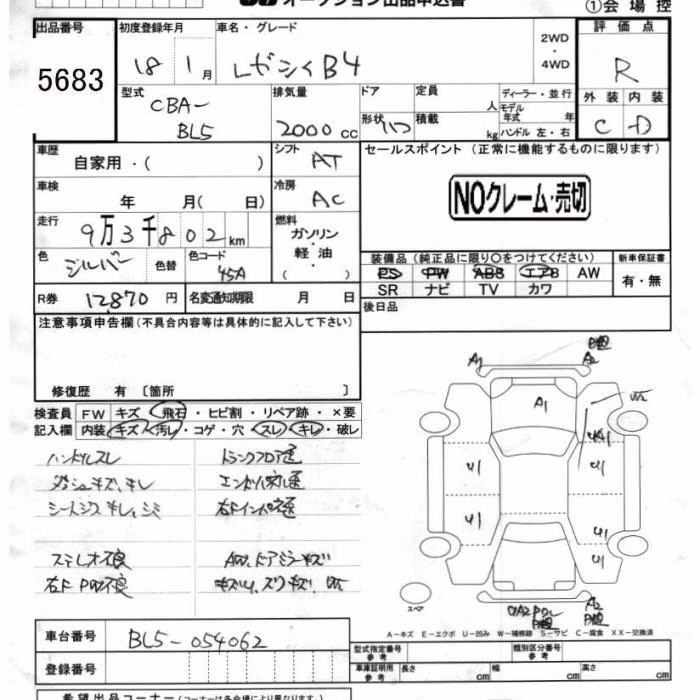 オークション出品申込書
①会場控
出品番号 初度登録年月 車名・グレード 2WD・4WD 評価点
5683 18 1月 レガシィB4 R
型式 CBA-BL5 排気量 2000cc ドア 形状 ハコ 定員 人 積載 kg ディーラー・並行 モデル年式 年 ハンドル 左・右 外装 C 内装 D
車歴 自家用・( ) シフト AT セールスポイント (正常に機能するものに限ります)
車検 年 月( 日) 冷房 AC NOクレーム・売切
走行 9万3千802km 燃料 ガソリン・軽油・( )
色 シルバー 色替 色コード 45A 装備品(純正品に限り○をつけてください) 新車保証書
PS PW ABS エアB AW 有・無
SR ナビ TV カワ
R券 12,870円 名変通知期限 月 日 後日品
注意事項申告欄(不具合内容等は具体的に記入して下さい)
修復歴 有〔箇所 〕
検査員 FW キズ・飛石・ヒビ割・リペア跡・×要
記入欄 内装 キズ・汚レ・コゲ・穴・スレ・キレ・破レ
ハンドルスレ トランクフロア歪
ダッシュキズ、キレ エンドパネル歪
シートシミ キレ、シミ 右Fインパネ歪
ステレオ不良 AW、ドアミラーキズ
右F PW不良
A1 A2
A1
U1 U1
U1 U1
U1
A2
スペア
A-キズ E-エクボ U-凹み W-補修跡 S-サビ C-腐食 XX-交換済
車台番号 BL5-054062 型式指定番号 参考 類別区分番号 参考
登録番号 車庫証明用 参考 長さ cm 幅 cm 高さ cm
希望出品コーナー(コーナーは各会場により異なります。)